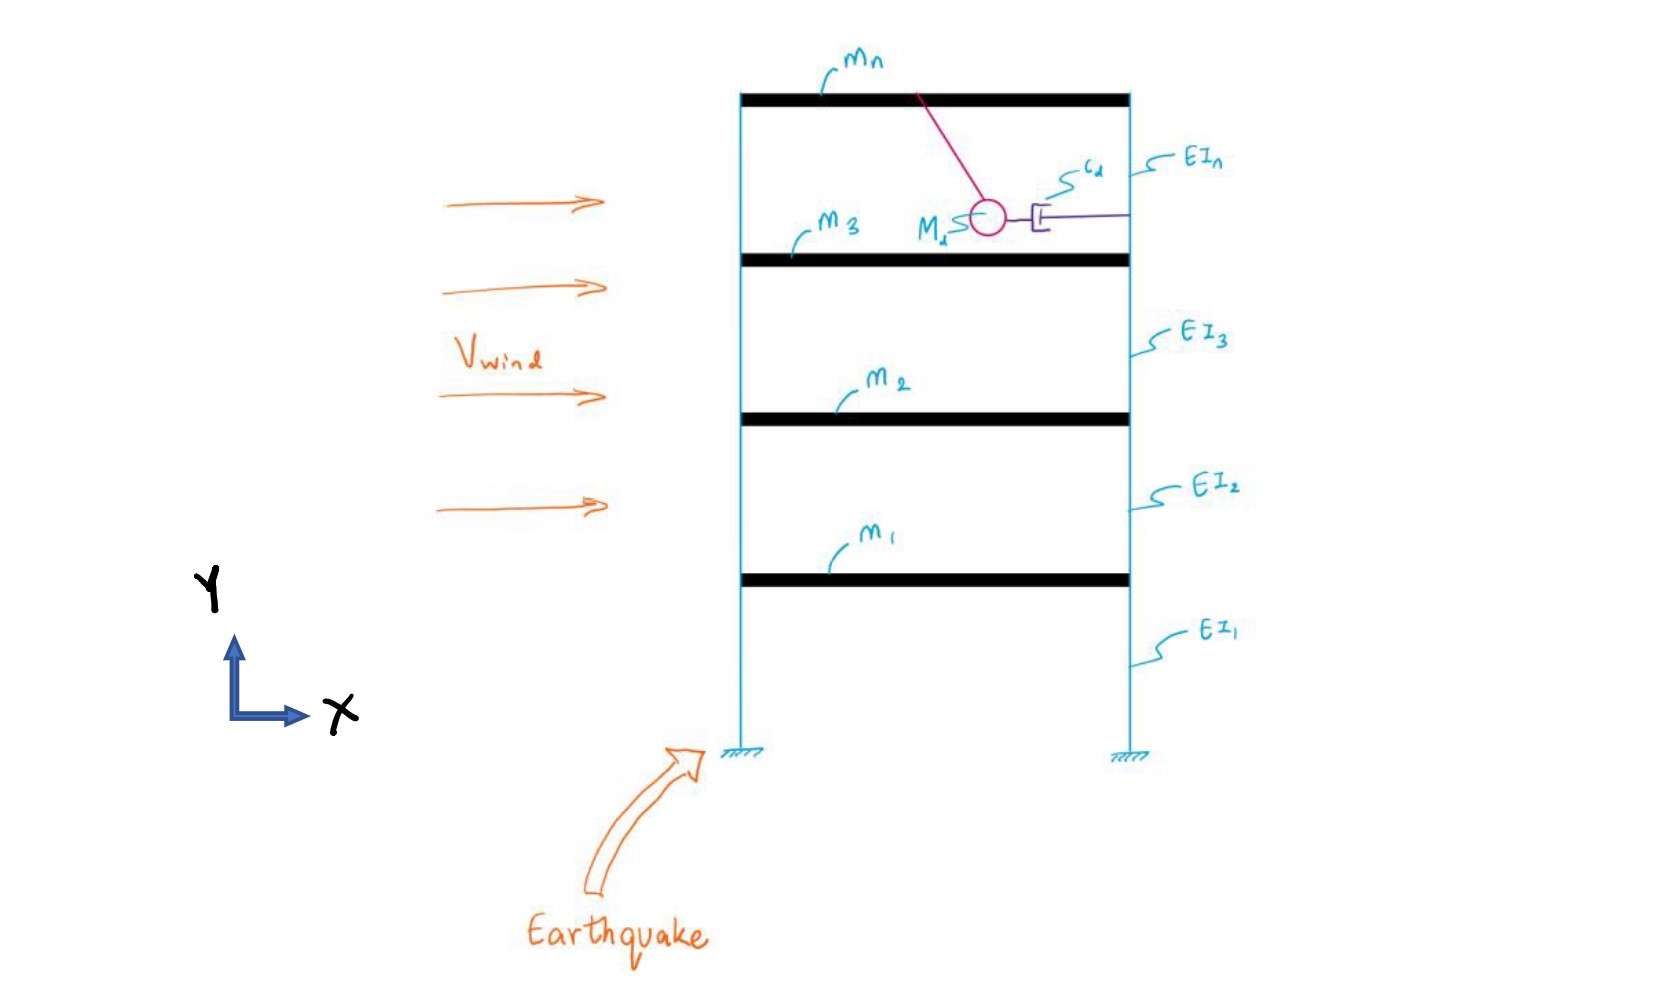 mn
EIn
Cd
m3
Md
EI3
Vwind
m2
EI2
m1
Y
EI1
X
Earthquake